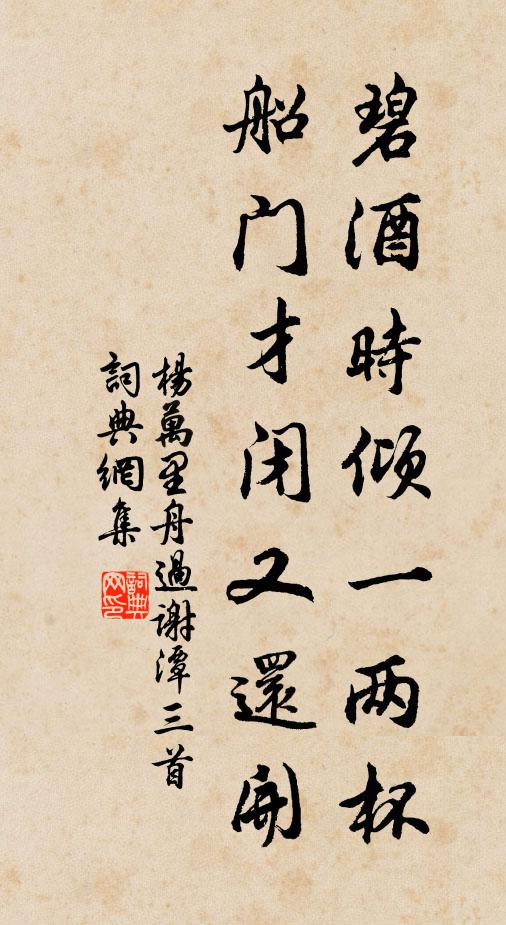 碧酒時傾一两杯
船门才闭又還開
楊萬里舟過謝潭三首
詞典網集
詞典網印